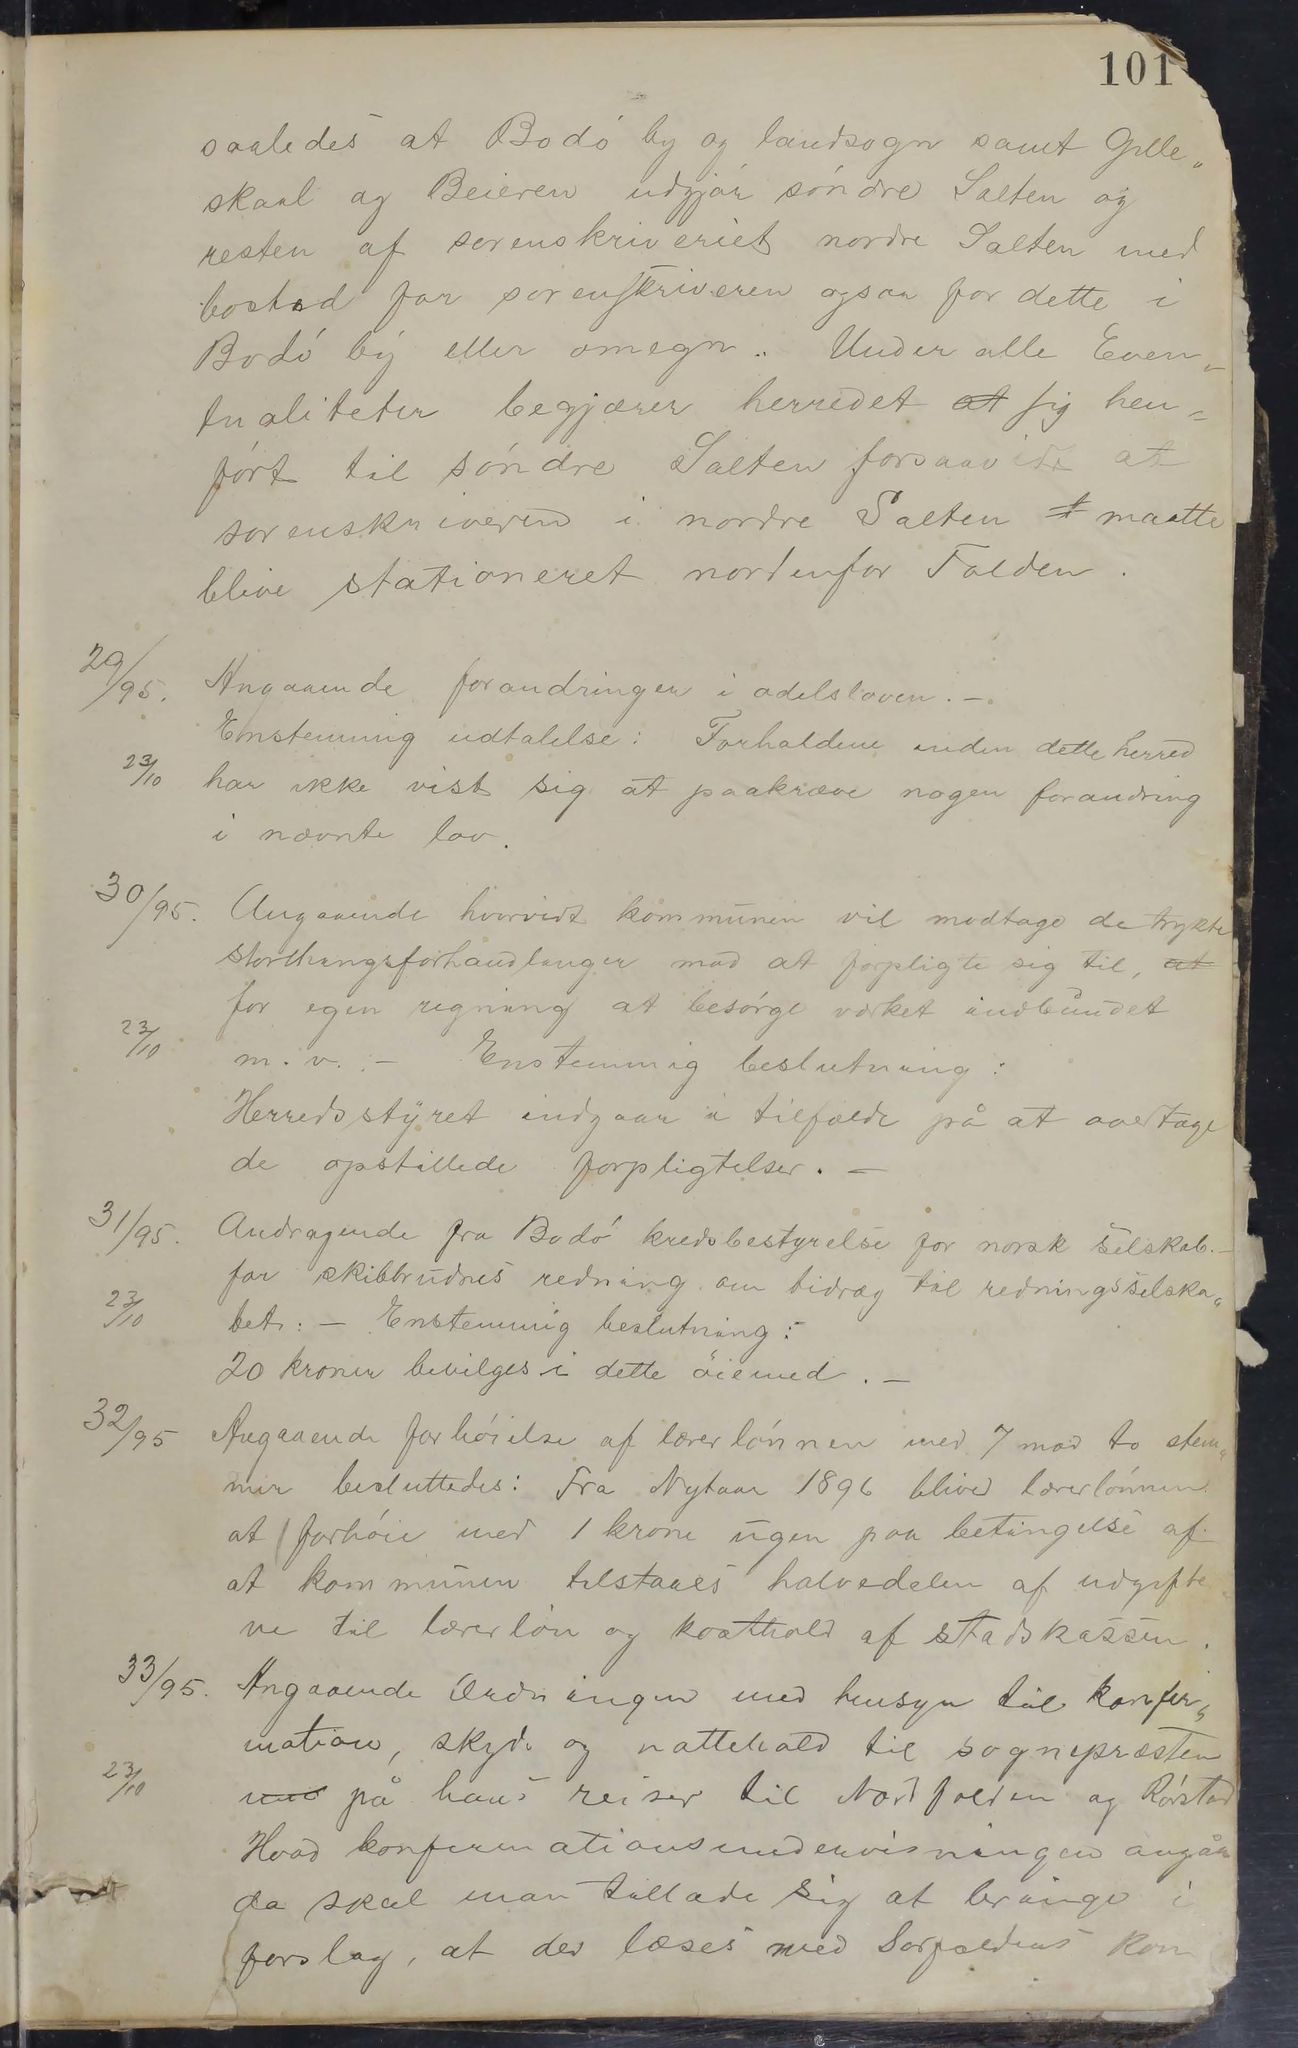 101
saaledes at Bodó by og landsogn samt Gille„
skaal og Beieren udgjör söndre Salten og
resten af sorenskriveriet nordre Salten med
bosted for sorenskriveren ogsaa for dette i
Bodó by eller omegn. Under alle Even„
tualiteter begjærer herredet at sig hen„
fört til söndre Salten forsaavidt at
sorenskriveren i nordre Salten maatte
blive stationeret nordenfor Folden.
29/95. Angaaende forandringer i odelsloven. –
Enstemmig udtalelse: Forholdene inden dette herred
23/10 har ikke vist sig at paakræve nogen forandring
i nævnte lov.
30/95. Angaaende hvorvidt kommunen vil modtage de trykte
storthingsforhandlinger mod at forpligte sig til, at
for egen regning at besörge værket indbundet
23/10 m.v. – Enstemmig beslutning:
Herredsstyret indgaar i tilfælde på at overtage
de opstillede forpligtelser. –
31/95. Andragende fra Bodó kredsbestyrelse for norsk selskab
for skibbrudnes redning om bidrag til redningsselska„
23/10 bet: – Enstemmig beslutning:
20 kroner bevilges i dette öiemed. –
32/95 Angaaende forhöielse af lærerlönnen med 7 mod to stem„
mer besluttedes: Fra Nytaar 1896 blive lærerlönnen
at forhöie med 1 krone ugen paa betingelse af
at kommunen tilstaaes halvedelen af udgifte
ne til lærerlön og kosthold af stadskassen.
33/95. Angaaende Ordningen med hensyn til konfir„
mation, skyds og nattehold til sognepræsten
23/10 på hans reiser til Nordfolden og Rörstad
Hvad konfirmationsundervisningen angår
da skal man tillade sig at bringe i
forslag, at der læses med Sörfoldens kon